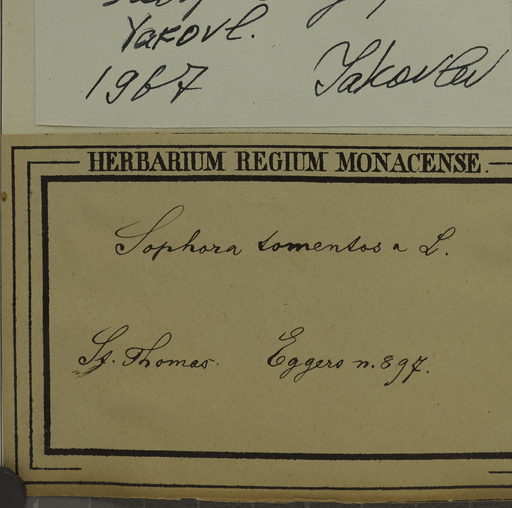 Yakovl.
1967 Yakovlev
HERBARIUM REGIUM MONACENSE.
Sophora tomentosa L.
St. Thomas. Eggers n. 897.